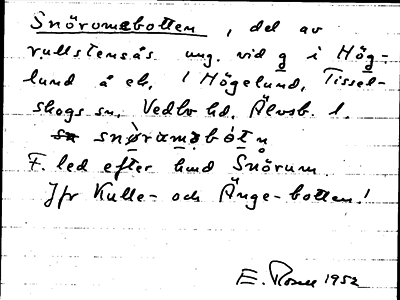 Snöromebotten, del av
rullstensås ung. vid g i Hög-
lund å ek. 1 Högelund, Tissel-
skogs sn, Vedbo hd, Älvsb. l.
snø̀ramabót n̥
F. led efter hmd Snörum.
Jfr Kulle- och Änge-botten!
E. Rosell 1952